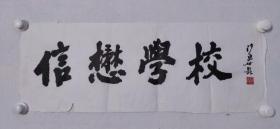 信懋學校